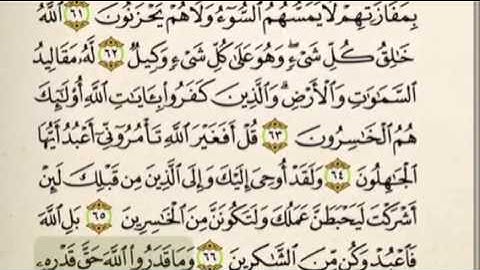 بِمَفَازَتِهِمْ لَا يَمَسُّهُمُ ٱلسُّوٓءُ وَلَا هُمْ يَحْزَنُونَ ٦١ ٱللَّهُ
خَٰلِقُ كُلِّ شَىْءٍۖ وَهُوَ عَلَىٰ كُلِّ شَىْءٍ وَكِيلٌ ٦٢ لَّهُۥ مَقَالِيدُ
ٱلسَّمَٰوَٰتِ وَٱلْأَرْضِۗ وَٱلَّذِينَ كَفَرُوا۟ بِـَٔايَٰتِ ٱللَّهِ أُو۟لَٰٓئِكَ
هُمُ ٱلْخَٰسِرُونَ ٦٣ قُلْ أَفَغَيْرَ ٱللَّهِ تَأْمُرُوٓنِّىٓ أَعْبُدُ أَيُّهَا
ٱلْجَٰهِلُونَ ٦٤ وَلَقَدْ أُوحِىَ إِلَيْكَ وَإِلَى ٱلَّذِينَ مِن قَبْلِكَ لَئِنْ
أَشْرَكْتَ لَيَحْبَطَنَّ عَمَلُكَ وَلَتَكُونَنَّ مِنَ ٱلْخَٰسِرِينَ ٦٥ بَلِ ٱللَّهَ
فَٱعْبُدْ وَكُن مِّنَ ٱلشَّٰكِرِينَ ٦٦ وَمَا قَدَرُوا۟ ٱللَّهَ حَقَّ قَدْرِهِۦ